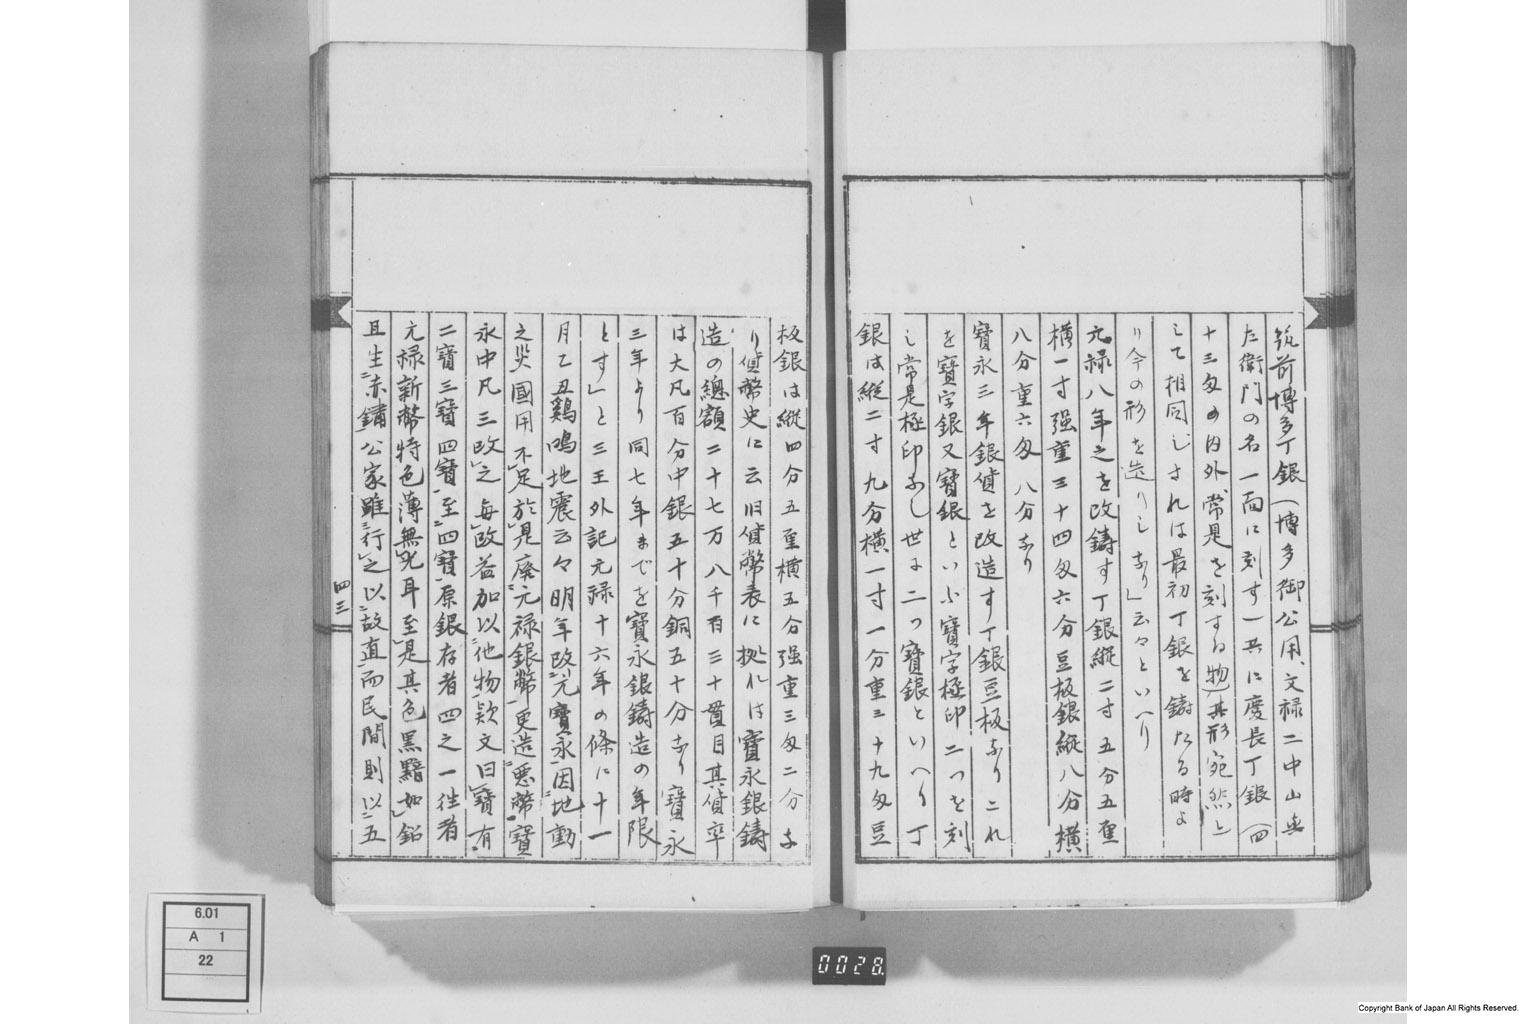 筑前博多丁銀(博多御公用、文禄二中山與
左衛門の名一面に刻す一共に慶長丁銀(四
十三匁の内外、常是を刻する物)其形宛然と
して相同じされは最初丁銀を鋳たる時よ
り今の形を造りしなり」云々といへり
元禄八年之を改鋳す丁銀縦二寸五分五厘
横一寸强重三十四匁六分豆板銀縦八分横
八分重六匁八分なり
寳永三年銀貨を改造す丁銀豆板なりこれ
を寳字銀又寳銀といふ寳字極印二つを刻
し常是極印なし世に二つ寳銀といへり丁
銀は縦二寸九分横一寸一分重三十九匁豆
板銀は縦四分五厘横五分强重三匁二分な
り貨幣史に云旧貨幣表に拠れは寳永銀鋳
造の總額二十七万八千百三十貫目其貨率
は大凡百分中銀五十分銅五十分なり寳永
三年より同七年までを寳永銀鋳造の年限
とす」と三王外記元禄十六年の條に十一
月乙丑鷄鳴地震云々明年改元寳永因地動
之災國用不足於是廢元禄銀幣更造悪幣寳
永中凡三改之每改益加以他物欵文曰寳有
二寳三寳四寳至四寳原銀存者四之一往者
元禄新幣特色薄無光耳至是其色黑黯如鉛
且生赤鏽公家雖行之以故直而民間則以五
四三
6.01
A 1
22
0028
Copyright Bank of Japan All Rights Reserved.